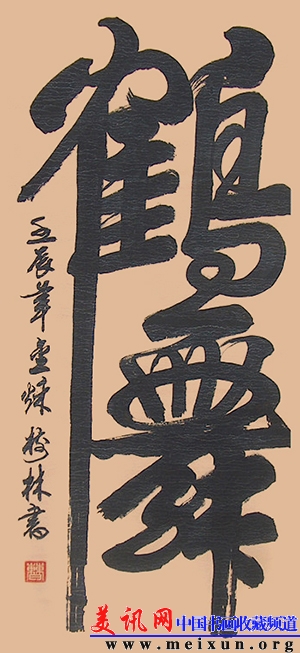 鶴舞
壬辰年孟秋樹林書
美讯网 中国书画收藏频道
www.meixun.org